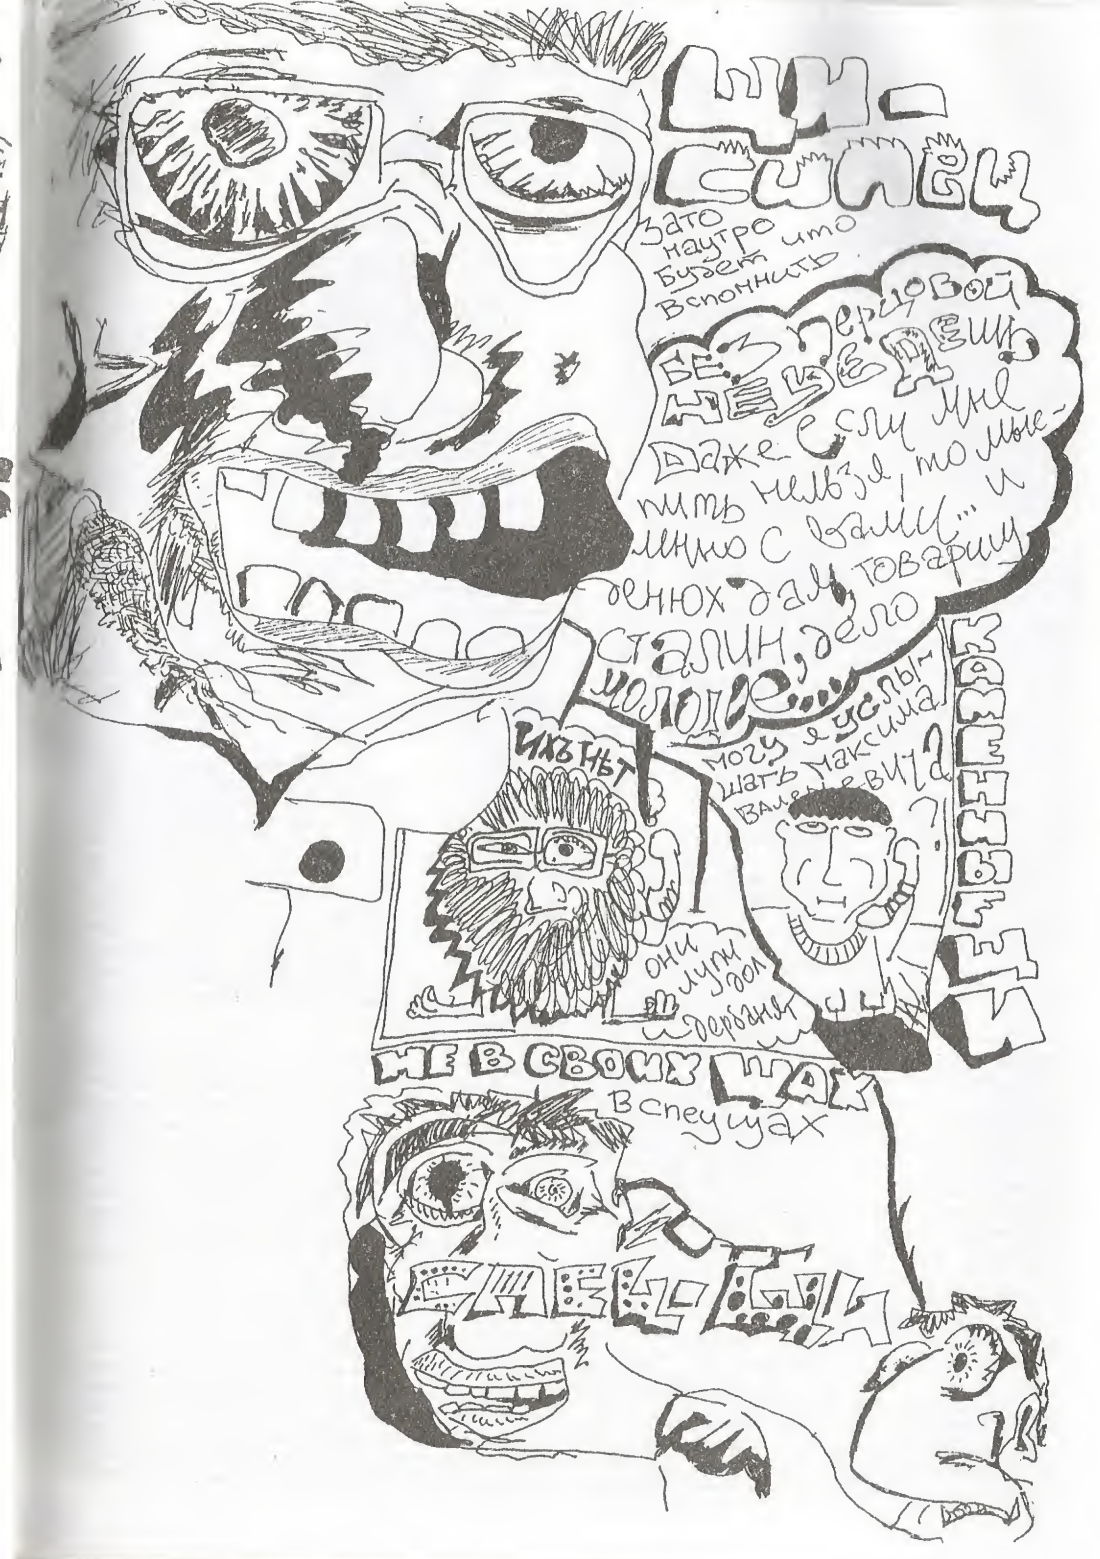 ЩИ-
СИПЕЦ
Зато
наутро
будет што
вспомнить
БЕЗ перцовой
НЕУЕДЕШЬ
Даже если мне
пить нельзя, то мыс-
ленно с вами... и
денюх дам, товарищ
Сталин, дело
молодое....
могу я услы-
шать максима
ТИХЪТНЬТ
они
лупи
дол
дербаня
НЕ В СВОИХ ЩАХ
В спецщах
СПЕЦ-ЩИ